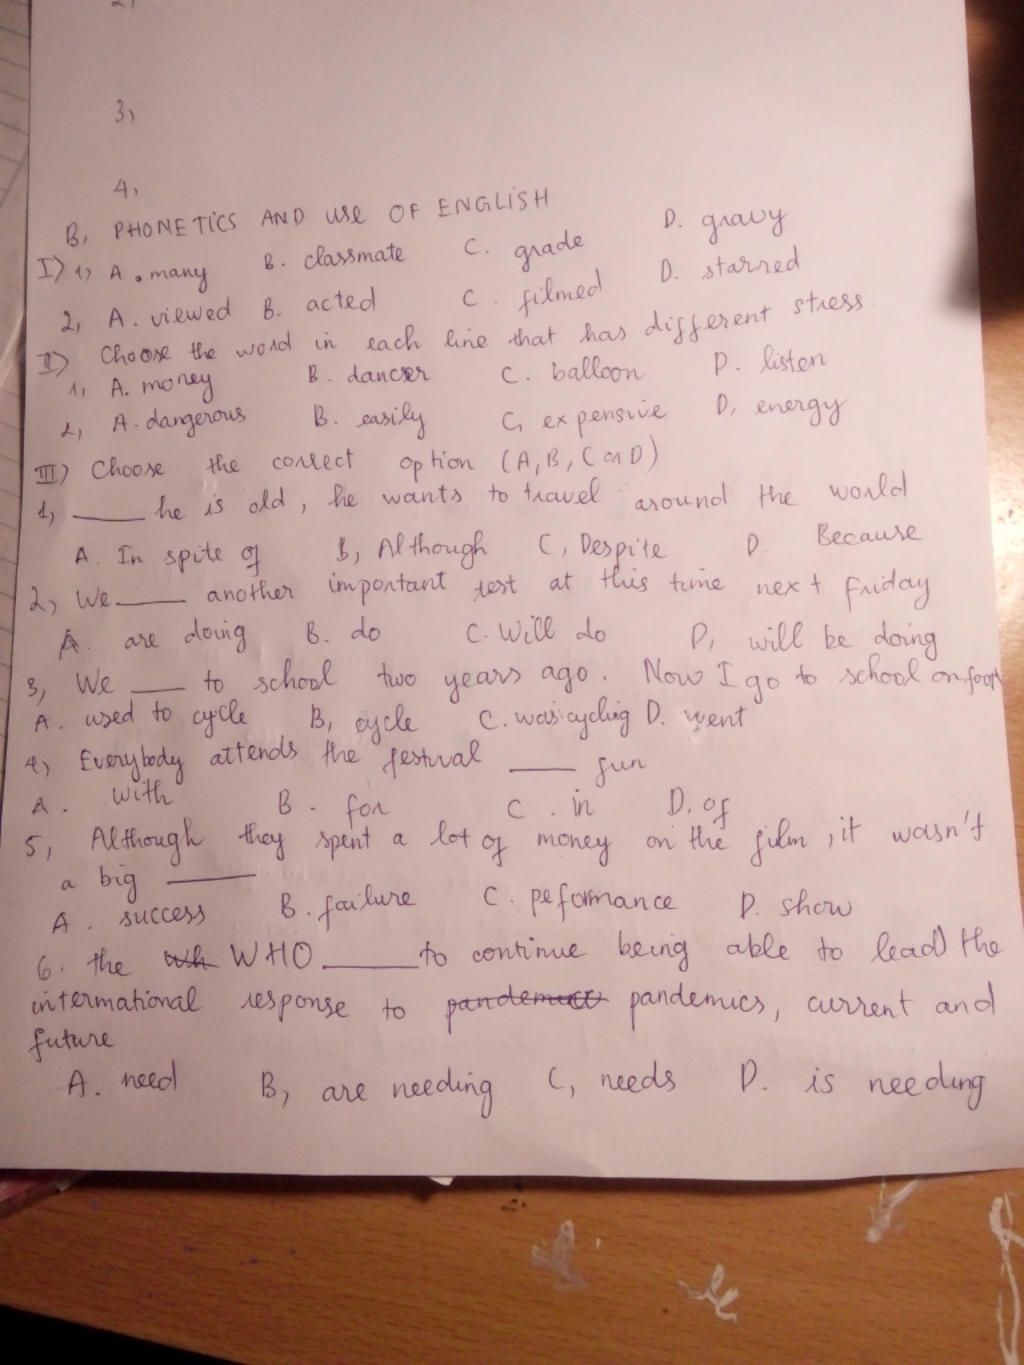 3,
4,
B, PHONETICS AND USE OF ENGLISH
I) 1, A. many B. classmate C. grade D. gravy
2, A. viewed B. acted C. filmed D. starred
II) Choose the word in each line that has different stress.
1, A. money B. dancer C. balloon D. listen
2, A. dangerous B. easily C, expensive D, energy
III) Choose the correct option (A, B, C or D)
1, ____ he is old, he wants to travel around the world
A. In spite of B, Although C, Despite D. Because
2, We ____ another important test at this time next friday
A. are doing B. do C. Will do D, will be doing
3, We ____ to school two years ago. Now I go to school on foot
A. used to cycle B, cycle C. was cycling D. went
4, Everybody attends the festival ____ fun
A. with B. for C. in D. of
5, Although they spent a lot of money on the film, it wasn't
a big ____
A. success B. failure C. peformance D. show
6. the WHO ____ to continue being able to lead the
international response to pandemics, current and
future
A. need B, are needing C, needs D. is needing